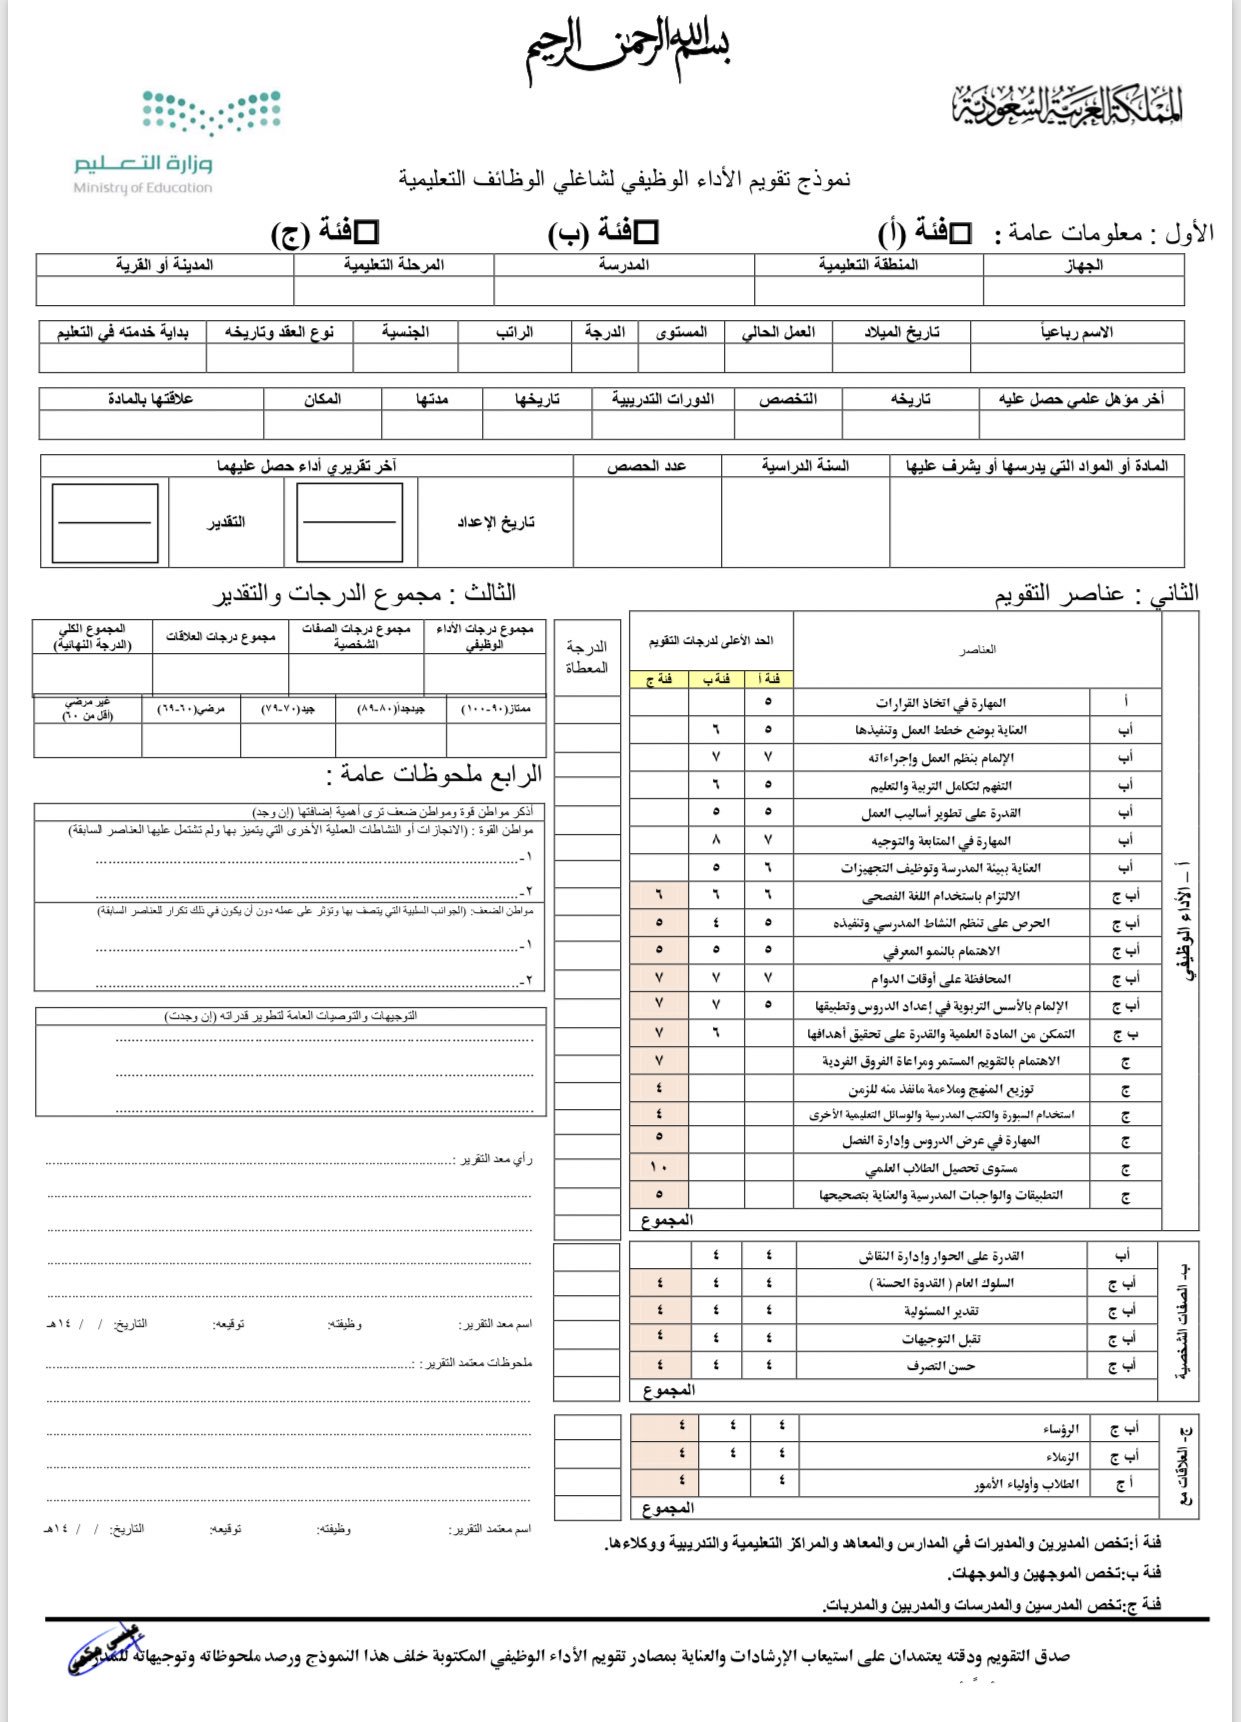 بسم الله الرحمن الرحيم
المملكة العربية السعودية
وزارة التعليم
Ministry of Education
نموذج تقويم الأداء الوظيفي لشاغلي الوظائف التعليمية
الأول : معلومات عامة : فئة (أ) فئة (ب) فئة (ج)
الجهاز المنطقة التعليمية المدرسة المرحلة التعليمية المدينة أو القرية
الاسم رباعياً تاريخ الميلاد العمل الحالي المستوى الدرجة الراتب الجنسية نوع العقد وتاريخه بداية خدمته في التعليم
أخر مؤهل علمي حصل عليه تاريخه التخصص الدورات التدريبية تاريخها مدتها المكان علاقتها بالمادة
المادة أو المواد التي يدرسها أو يشرف عليها السنة الدراسية عدد الحصص آخر تقريري أداء حصل عليهما
تاريخ الإعداد التقدير
الثاني : عناصر التقويم
العناصر الحد الأعلى لدرجات التقويم الدرجة المعطاة
فئة أ فئة ب فئة ج
أ – الأداء الوظيفي
أ المهارة في اتخاذ القرارات ٥
أب العناية بوضع خطط العمل وتنفيذها ٥ ٦
أب الإلمام بنظم العمل وإجراءاته ٧ ٧
أب التفهم لتكامل التربية والتعليم ٥ ٦
أب القدرة على تطوير أساليب العمل ٥ ٥
أب المهارة في المتابعة والتوجيه ٧ ٨
أب العناية ببيئة المدرسة وتوظيف التجهيزات ٦ ٥
أب ج الالتزام باستخدام اللغة الفصحى ٦ ٦ ٦
أب ج الحرص على تنظم النشاط المدرسي وتنفيذه ٥ ٤ ٥
أب ج الاهتمام بالنمو المعرفي ٥ ٥ ٥
أب ج المحافظة على أوقات الدوام ٧ ٧ ٧
أب ج الإلمام بالأسس التربوية في إعداد الدروس وتطبيقها ٥ ٧ ٧
ب ج التمكن من المادة العلمية والقدرة على تحقيق أهدافها ٦ ٧
ج الاهتمام بالتقويم المستمر ومراعاة الفروق الفردية ٧
ج توزيع المنهج وملاءمة مانفذ منه للزمن ٤
ج استخدام السبورة والكتب المدرسية والوسائل التعليمية الأخرى ٤
ج المهارة في عرض الدروس وإدارة الفصل ٥
ج مستوى تحصيل الطلاب العلمي ١٠
ج التطبيقات والواجبات المدرسية والعناية بتصحيحها ٥
المجموع
ب- الصفات الشخصية
أب القدرة على الحوار وإدارة النقاش ٤ ٤
أب ج السلوك العام ( القدوة الحسنة ) ٤ ٤ ٤
أب ج تقدير المسئولية ٤ ٤ ٤
أب ج تقبل التوجيهات ٤ ٤ ٤
أب ج حسن التصرف ٤ ٤ ٤
المجموع
ج- العلاقات مع
أب ج الرؤساء ٤ ٤ ٤
أب ج الزملاء ٤ ٤ ٤
أ ج الطلاب وأولياء الأمور ٤ ٤
المجموع
الثالث : مجموع الدرجات والتقدير
مجموع درجات الأداء الوظيفي مجموع درجات الصفات الشخصية مجموع درجات العلاقات المجموع الكلي (الدرجة النهائية)
ممتاز(٩٠-١٠٠) جيدجداً(٨٠-٨٩) جيد(٧٠-٧٩) مرضي(٦٠-٦٩) غير مرضي (أقل من ٦٠)
الرابع ملحوظات عامة :
أذكر مواطن قوة ومواطن ضعف ترى أهمية إضافتها (إن وجد)
مواطن القوة : (الانجازات أو النشاطات العملية الأخرى التي يتميز بها ولم تشتمل عليها العناصر السابقة)
١-
٢-
مواطن الضعف: (الجوانب السلبية التي يتصف بها وتوثر على عمله دون أن يكون في ذلك تكرار للعناصر السابقة)
١-
٢-
التوجيهات والتوصيات العامة لتطوير قدراته (إن وجدت)
رأي معد التقرير :
اسم معد التقرير: وظيفته: توقيعه: التاريخ: / / ١٤هـ
ملحوظات معتمد التقرير : :
اسم معتمد التقرير: وظيفته: توقيعه: التاريخ: / / ١٤هـ
فئة أ:تخص المديرين والمديرات في المدارس والمعاهد والمراكز التعليمية والتدريبية ووكلاءها.
فئة ب:تخص الموجهين والموجهات.
فئة ج:تخص المدرسين والمدرسات والمدربين والمدربات.
صدق التقويم ودقته يعتمدان على استيعاب الإرشادات والعناية بمصادر تقويم الأداء الوظيفي المكتوبة خلف هذا النموذج ورصد ملحوظاته وتوجيهاته